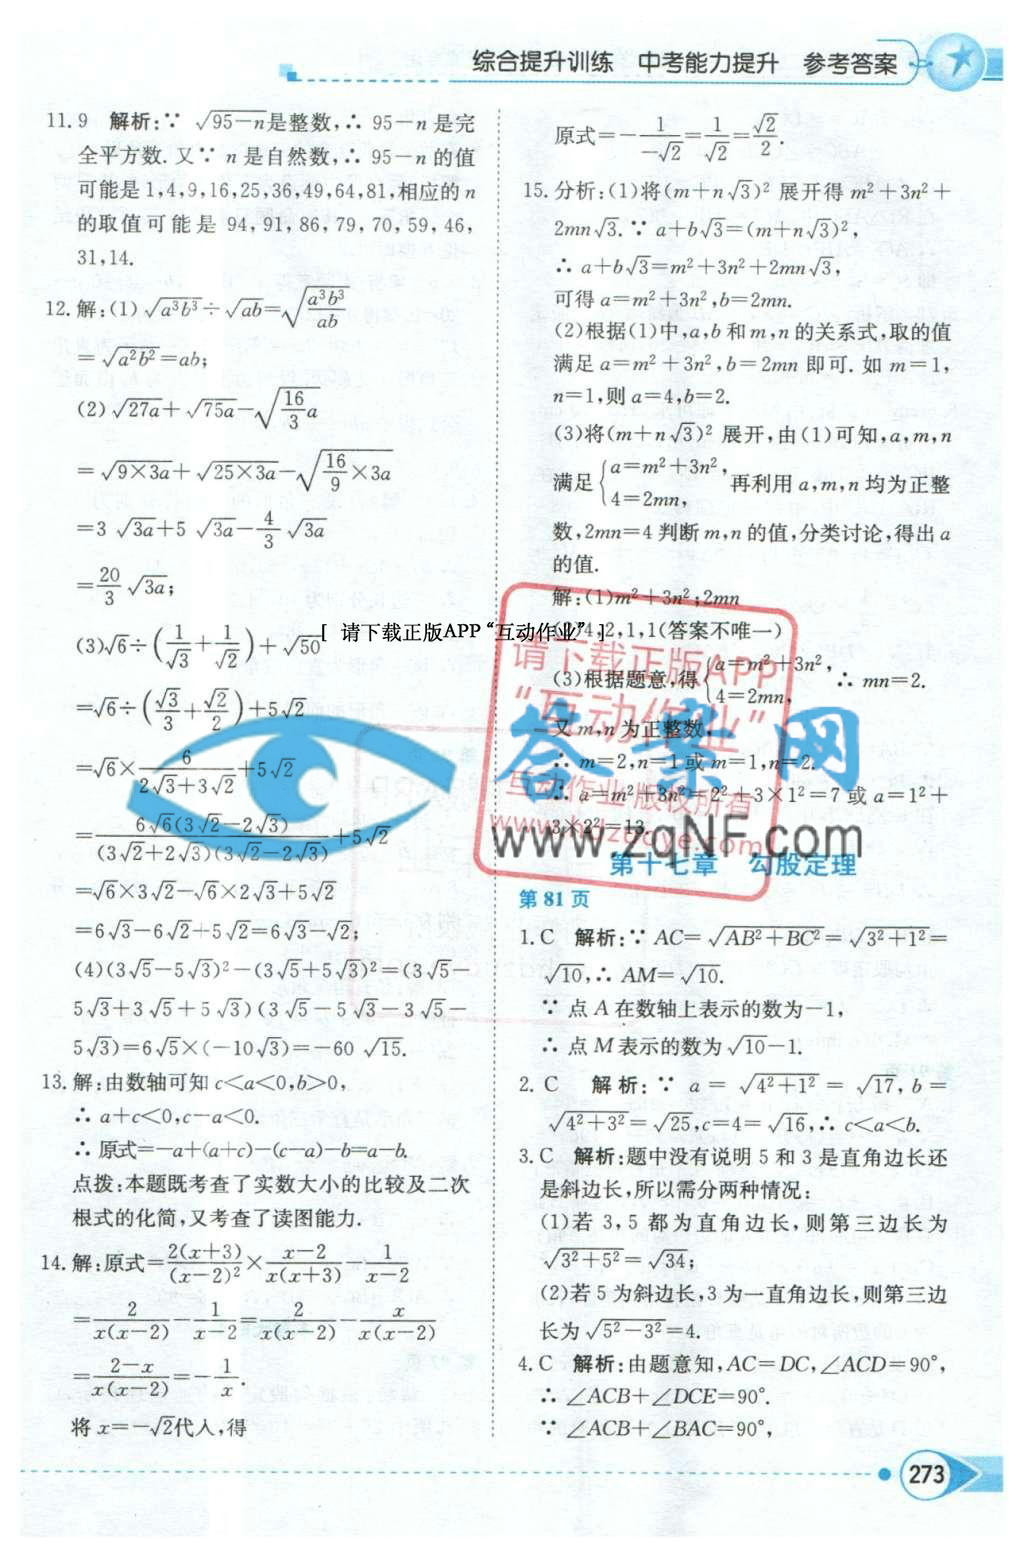 综合提升训练 中考能力提升 参考答案
11. 9 解析:∵ √(95-n)是整数,∴ 95-n 是完
全平方数. 又∵ n 是自然数,∴ 95-n 的值
可能是 1,4,9,16,25,36,49,64,81,相应的 n
的取值可能是 94, 91, 86, 79, 70, 59, 46,
31,14.
12. 解:(1) √(a³b³)÷√(ab)=√(a³b³/ab)
=√(a²b²)=ab;
(2) √(27a)+√(75a)-√(16/3 a)
=√(9×3a)+√(25×3a)-√(16/9 ×3a)
=3√(3a)+5√(3a)-4/3 √(3a)
=20/3 √(3a);
(3)√6÷(1/√3+1/√2)+√50
=√6÷(√3/3+√2/2)+5√2
=√6×6/(2√3+3√2)+5√2
=6√6(3√2-2√3)/((3√2+2√3)(3√2-2√3))+5√2
=√6×3√2-√6×2√3+5√2
=6√3-6√2+5√2=6√3-√2;
(4)(3√5-5√3)²-(3√5+5√3)²=(3√5-
5√3+3√5+5√3)(3√5-5√3-3√5-
5√3)=6√5×(-10√3)=-60√15.
13. 解:由数轴可知 c<a<0,b>0,
∴ a+c<0,c-a<0.
∴ 原式=-a+(a+c)-(c-a)-b=a-b.
点拨:本题既考查了实数大小的比较及二次
根式的化简,又考查了读图能力.
14. 解:原式=2(x+3)/(x-2)²×(x-2)/(x(x+3))-1/(x-2)
=2/(x(x-2))-1/(x-2)=2/(x(x-2))-x/(x(x-2))
=(2-x)/(x(x-2))=-1/x.
将 x=-√2代入,得
原式=-1/(-√2)=1/√2=√2/2.
15. 分析:(1)将(m+n√3)² 展开得 m²+3n²+
2mn√3. ∵ a+b√3=(m+n√3)²,
∴ a+b√3=m²+3n²+2mn√3,
可得 a=m²+3n²,b=2mn.
(2)根据(1)中,a,b 和 m,n 的关系式,取的值
满足 a=m²+3n²,b=2mn 即可. 如 m=1,
n=1,则 a=4,b=2.
(3)将(m+n√3)² 展开,由(1)可知,a,m,n
满足{a=m²+3n², 4=2mn, 再利用 a,m,n 均为正整
数,2mn=4 判断 m,n 的值,分类讨论,得出 a
的值.
解:(1)m²+3n²;2mn
(2)4,2,1,1(答案不唯一)
(3)根据题意,得{a=m²+3n², 4=2mn, ∴ mn=2.
又 m,n 为正整数,
∴ m=2,n=1 或 m=1,n=2.
∴ a=m²+3n²=2²+3×1²=7 或 a=1²+
3×2²=13.
第十七章 勾股定理
第 81 页
1. C 解析:∵ AC=√(AB²+BC²)=√(3²+1²)=
√10,∴ AM=√10.
∵ 点 A 在数轴上表示的数为-1,
∴ 点 M 表示的数为√10-1.
2. C 解析:∵ a=√(4²+1²)=√17,b=
√(4²+3²)=√25,c=4=√16,∴ c<a<b.
3. C 解析:题中没有说明 5 和 3 是直角边长还
是斜边长,所以需分两种情况:
(1)若 3,5 都为直角边长,则第三边长为
√(3²+5²)=√34;
(2)若 5 为斜边长,3 为一直角边长,则第三边
长为√(5²-3²)=4.
4. C 解析:由题意知,AC=DC,∠ACD=90°,
∴ ∠ACB+∠DCE=90°.
∵ ∠ACB+∠BAC=90°,
273
[ 请下载正版APP“互动作业” ]
请下载正版APP
“互动作业”
互动作业版权所有
答案网
www.zqNF.com